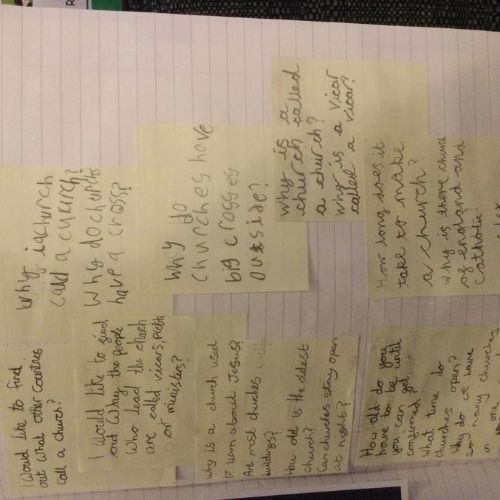 Why is church
calld a church?
Why do churches
have a cross?
Why do
churches have
big crosses
outside?
why is a
church called
a church?
why is a vicar
called a vicar?
How long does it
take to make
a church?
why is there church
of england and
catholic
I would like to find
out what other countries
call a church?
I would like to find
out why the people
who lead the church
are called vicars,
or ministers?
why is a church used
to learn about Jesus?
Are most churches
buildings?
How old is the oldest
church?
Can churches stay open
at night?
How old do you
have to be until
you can get
confirmed
What time do
churches open?
Why do we have
so many churches
in